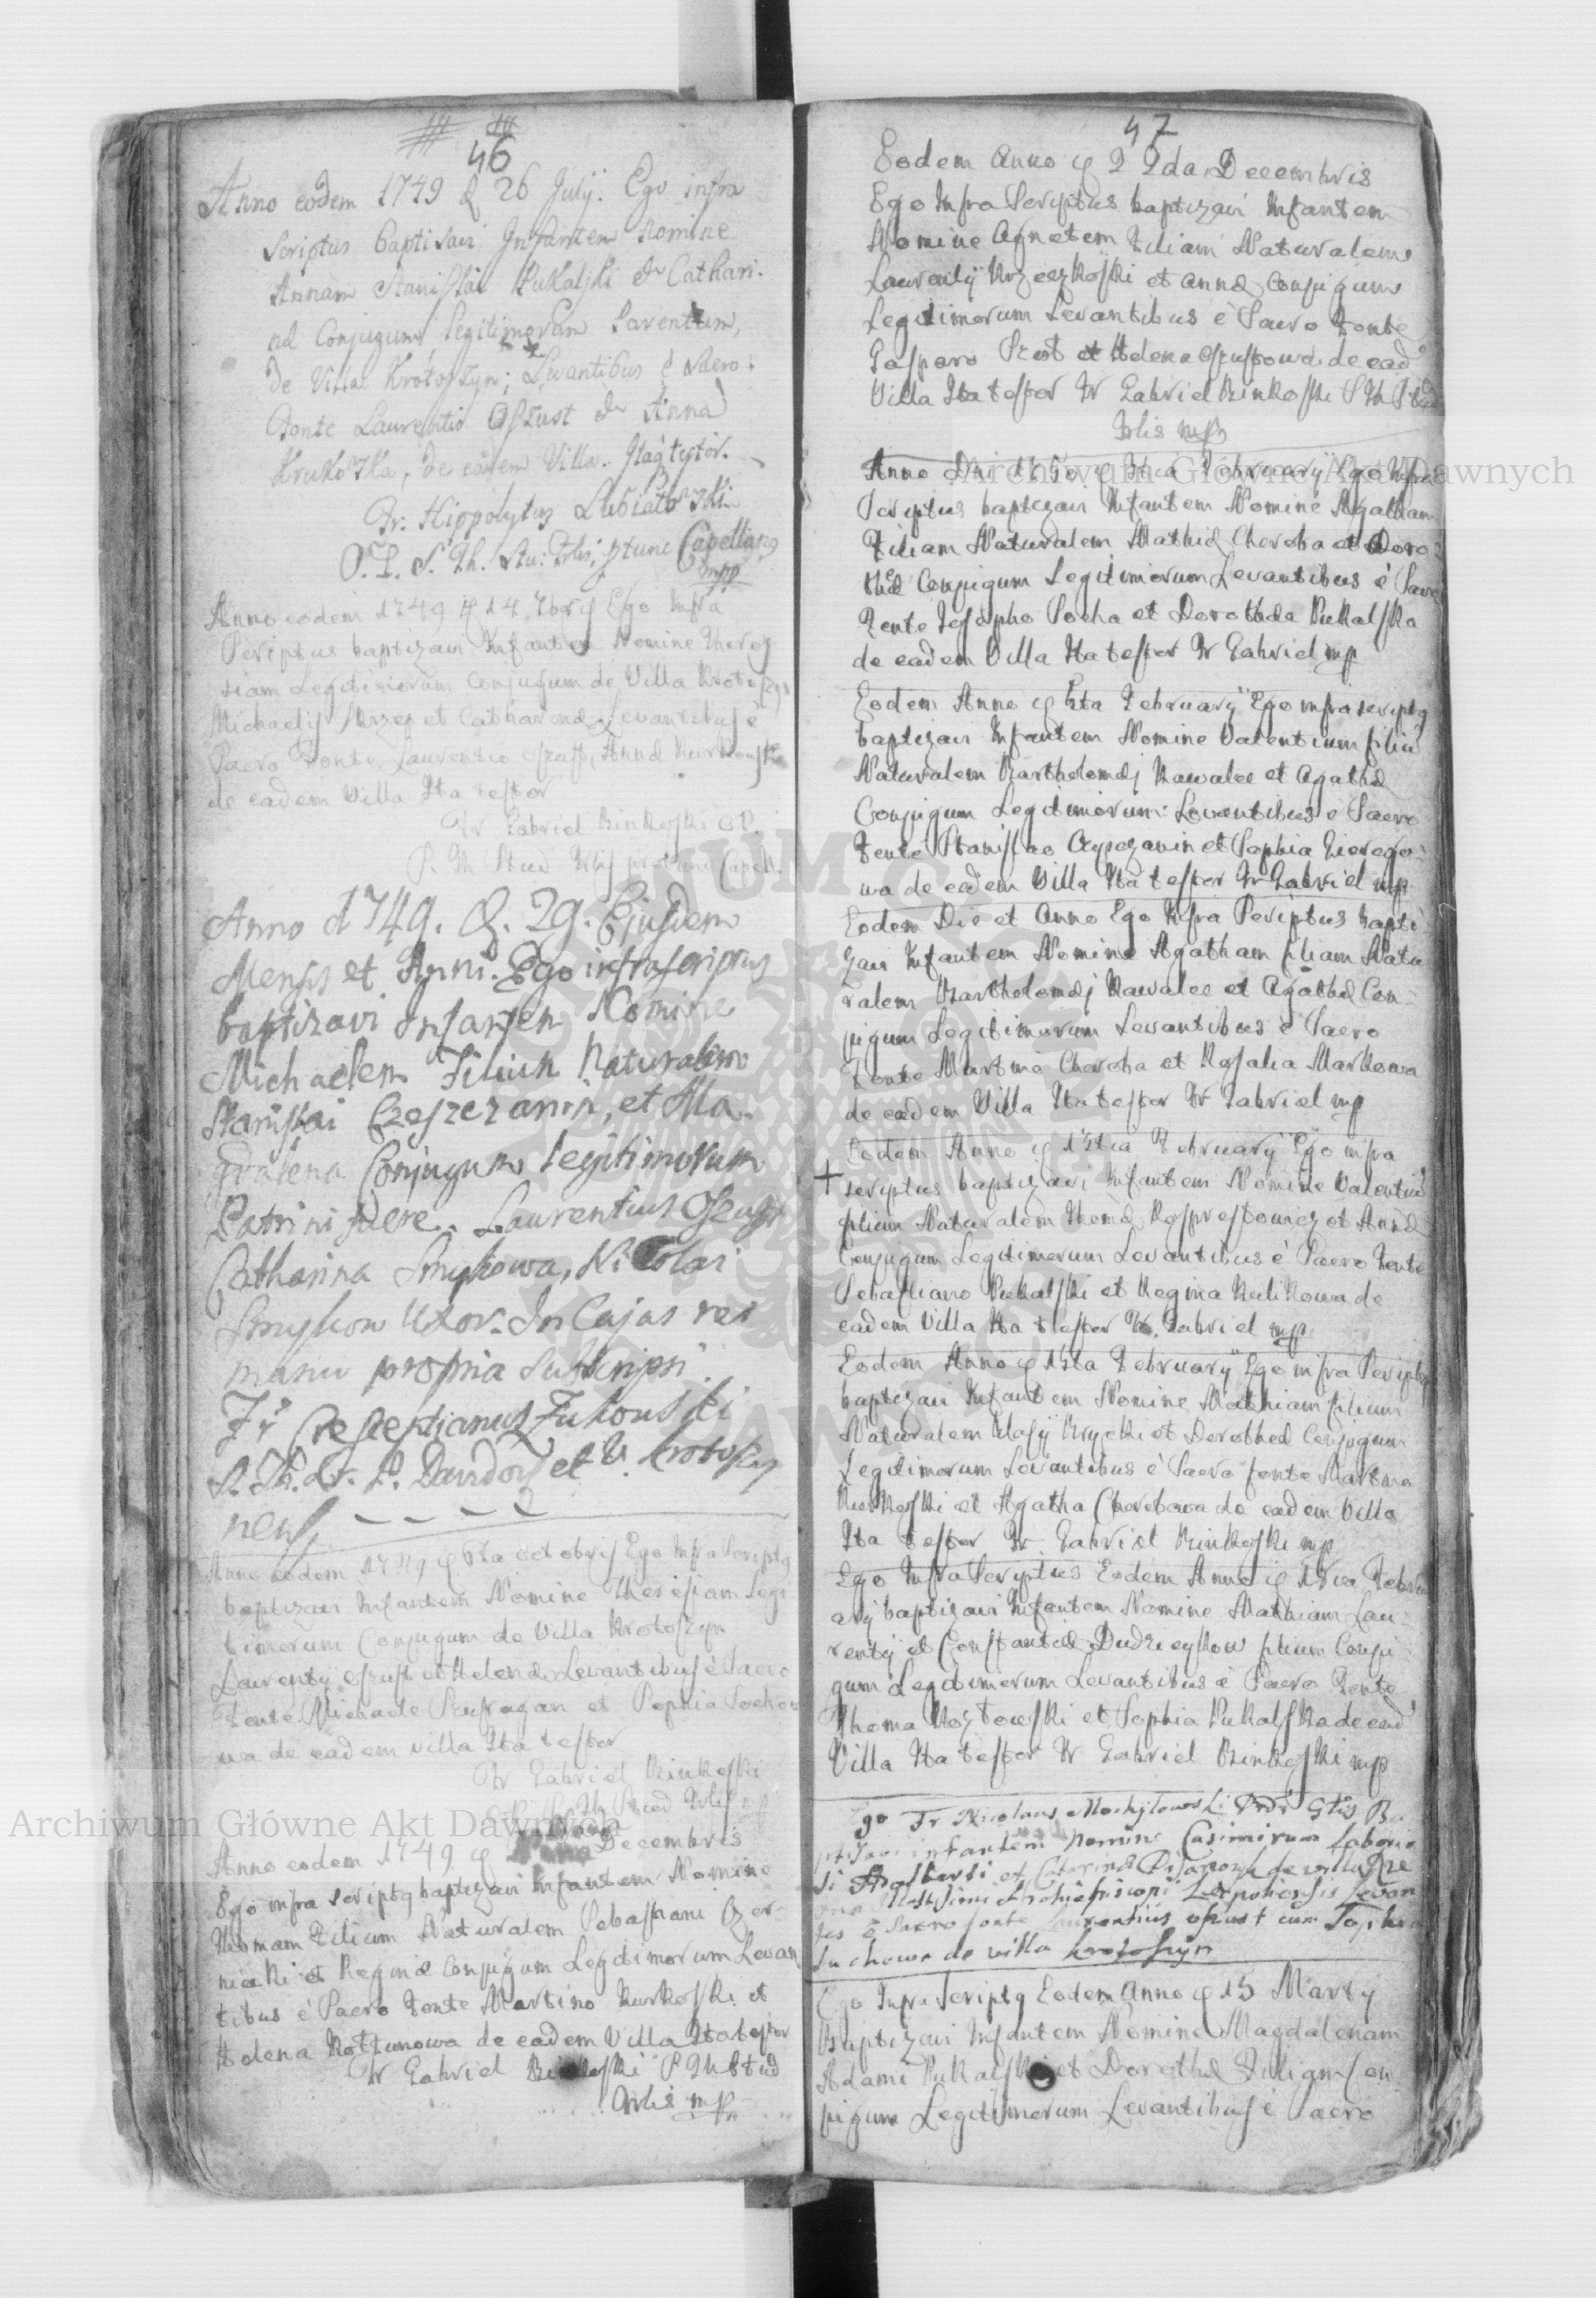 46
Anno eodem 1749 d 26 July. Ego infra
scriptus baptisavi Infantem Nomine
Annam Stanislai Pukalski & Cathari-
næ Conjugum Legitimorum Parentum,
de Villa Krotoszyn; Levantibus è Sacro
Fonte Laurentio Oszust & Anna
Krukoska, de eadem Villa. Itaq testor.
Fr. Hippolytus Lubiatoski
O. P. S. Th. Stu: Frlis, ptunc Capellang
mpp
Anno eodem 1749 14 7bris Ego Infra
Scriptus baptizavi Infantem Nomine
siam Legitimorum Conjugum de Villa Krotoszyn
Michaelis et Catharinæ Levantibus è
Sacro Fonte Laurentio Oszust, Anna
de eadem Villa Ita testor
Fr Gabriel Binkoski OP.
S. Th Stud Frlis pro tunc Capell.
Anno 1749. d. 29. Ejusdem
Mensis et Anni. Ego infrascriptus
baptizavi Infantem Nomine
Michaelem Filium Naturalem
Stanislai Czeszczanin, et Ma-
gdalena Conjugum legitimorum
Patrini fuere. Laurentius Oszust
Catharina Smykowa, Nicolai
Smykow Uxor. In Cujas rei
manu propria Subscripsi.
Fr
S. Th. L. P. et V. Krotoszy
nens,
Anno eodem 1749 6ta octobris Ego Infra Scriptq
baptizavi Infantem Nomine Theresiam Legi
timorum Conjugum de Villa Krotoszyn
Laurenty Oszust et Helenæ Levantibus è Sacro
Fonte Michaele et Sophia Socho
wa de eadem villa Ita testor
Fr Gabriel Binkoski
S Th Stud Frlis mp
Anno eodem 1749 Decembris
Ego infra scriptq baptizavi Infantem Nomine
Thomam Filium Naturalem Sebastiani Czer-
niaki et Reginæ Conjugum Legitimorum Levan
tibus è Sacro Fonte Martino Kurkoski et
Helena Kotunowa de eadem Villa Ita testor
Fr Gabriel Binkoski S Th Stud
Frlis mp
47
Eodem Anno 22da Decembris
Ego Infra Scriptus baptizavi Infantem
Nomine Agnetem Filiam Naturalem
Laurenty Krzeczkoski et Annæ Conjugum
Legitimorum Levantibus è Sacro Fonte
Gasparo et Helena Oszustowa de ead
Villa Ita testor Fr Gabriel Binkoski S Th Stud
Frlis mp
Anno Dni 1750 February Ego Infra
Scriptus baptizavi Infantem Nomine Agatham
Filiam Naturalem Mathiæ Chereba et Doro-
theæ Conjugum Legitimorum Levantibus è Sacro
Fonte Josepho Socha et Dorothea Pukalska
de eadem Villa Ita testor Fr Gabriel mp
Eodem Anno February Ego infra scriptq
baptizavi Infantem Nomine Valentium filiu
Naturalem Bartholomæi Kawalec et Agathæ
Conjugum Legitimorum: Levantibus è Sacro
Fonte Stanislao et Sophia
wa de eadem Villa Ita testor Fr Gabriel mp
Eodem Die et Anno Ego Infra Scriptus bapti
zavi Infantem Nomine Agatham filiam Natu
ralem Bartholomæi Kawalec et Agathæ Con-
jugum Legitimorum Levantibus è Sacro
Fonte Martino Chereba et Rosalia Markowa
de eadem Villa Ita testor Fr Gabriel mp
Eodem Anno February Ego infra
+ scriptus baptizavi Infantem Nomine Valentiu
filium Naturalem Thomæ et Annæ
Conjugum Legitimorum Levantibus è Sacro Fonte
Sebastiano Pukalski et Regina Kulikowa de
eadem Villa Ita testor Fr. Gabriel mp
Eodem Anno February Ego infra Scriptq
baptizavi Infantem Nomine Mathiam filium
Naturalem Blasÿ et Dorotheæ Conjugum
Legitimorum Levantibus è Sacro fonte Martino
Kurkoski et Agatha Cherebowa de eadem Villa
Ita testor Fr. Gabriel Binkoski mp
Ego Infra Scriptus Eodem Anno Febru
ary baptizavi Infantem Nomine Mathiam Lau-
renty et Constantiæ filium Conju-
gum Legitimorum Levantibus è Sacro Fonte
Thoma Kozłowski et Sophia Pukalska de ead
Villa Ita testor Fr Gabriel Binkoski mp
Ego Fr Nicolaus Ba
ptisavi infantem nomine Casimirum
Adalberti et Catarinæ de villa
Archiepiscopi Leopoliensis levan
tes è Sacro fonte Laurentius oszust cum Sophia
Suchowa de villa Krotoszyn
Ego Infra Scriptq Eodem Anno 15 Marty
Baptizavi Infantem Nomine Magdalenam
Adami Pukalski et Dorotheæ Filiam Con
jugum Legitimorum Levantibus è Sacro
Archiwum Główne Akt Dawnych
Archiwum Główne Akt Dawnych